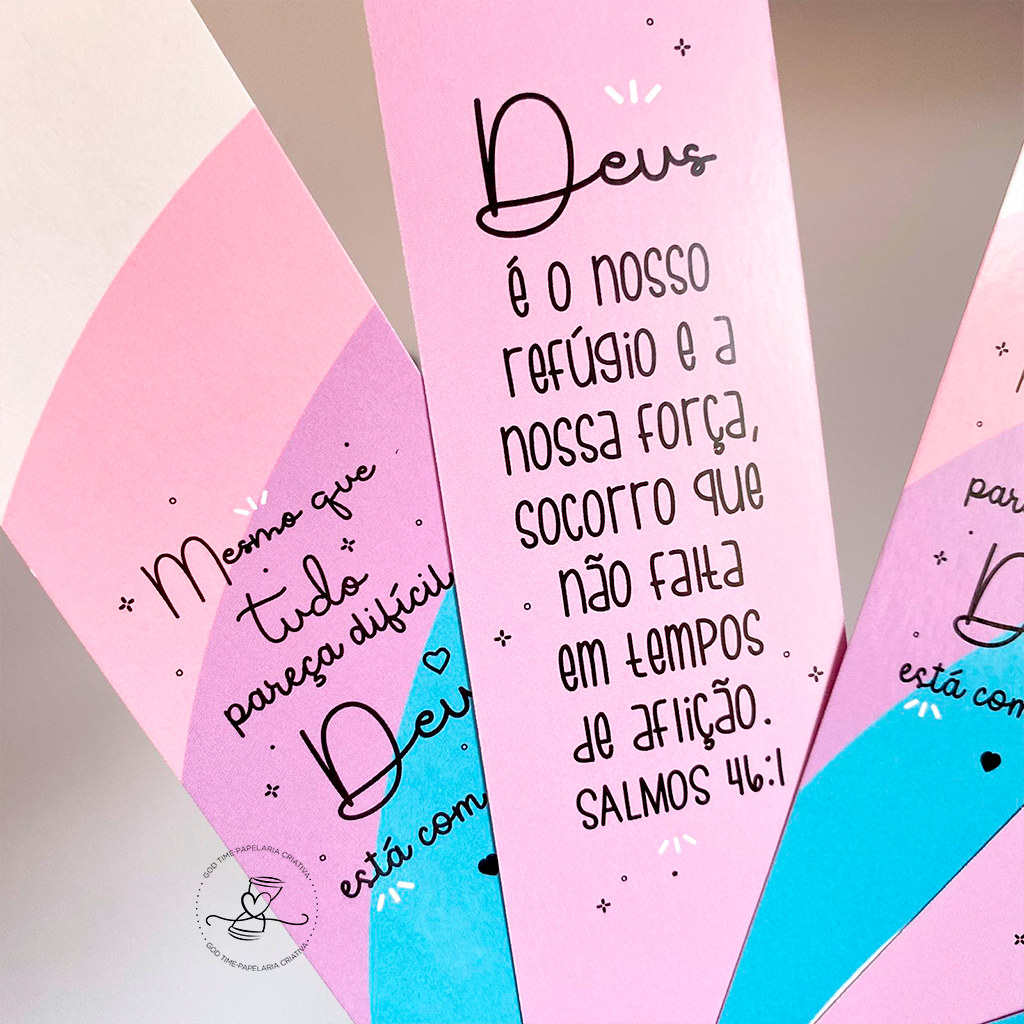 Mesmo que
tudo
pareça difícil
está com
Deus
é o nosso
refúgio e a
nossa força,
socorro que
não falta
em tempos
de aflição.
SALMOS 46:1
está com
GOD TIME-PAPELARIA CRIATIVA
GOD TIME-PAPELARIA CRIATIVA